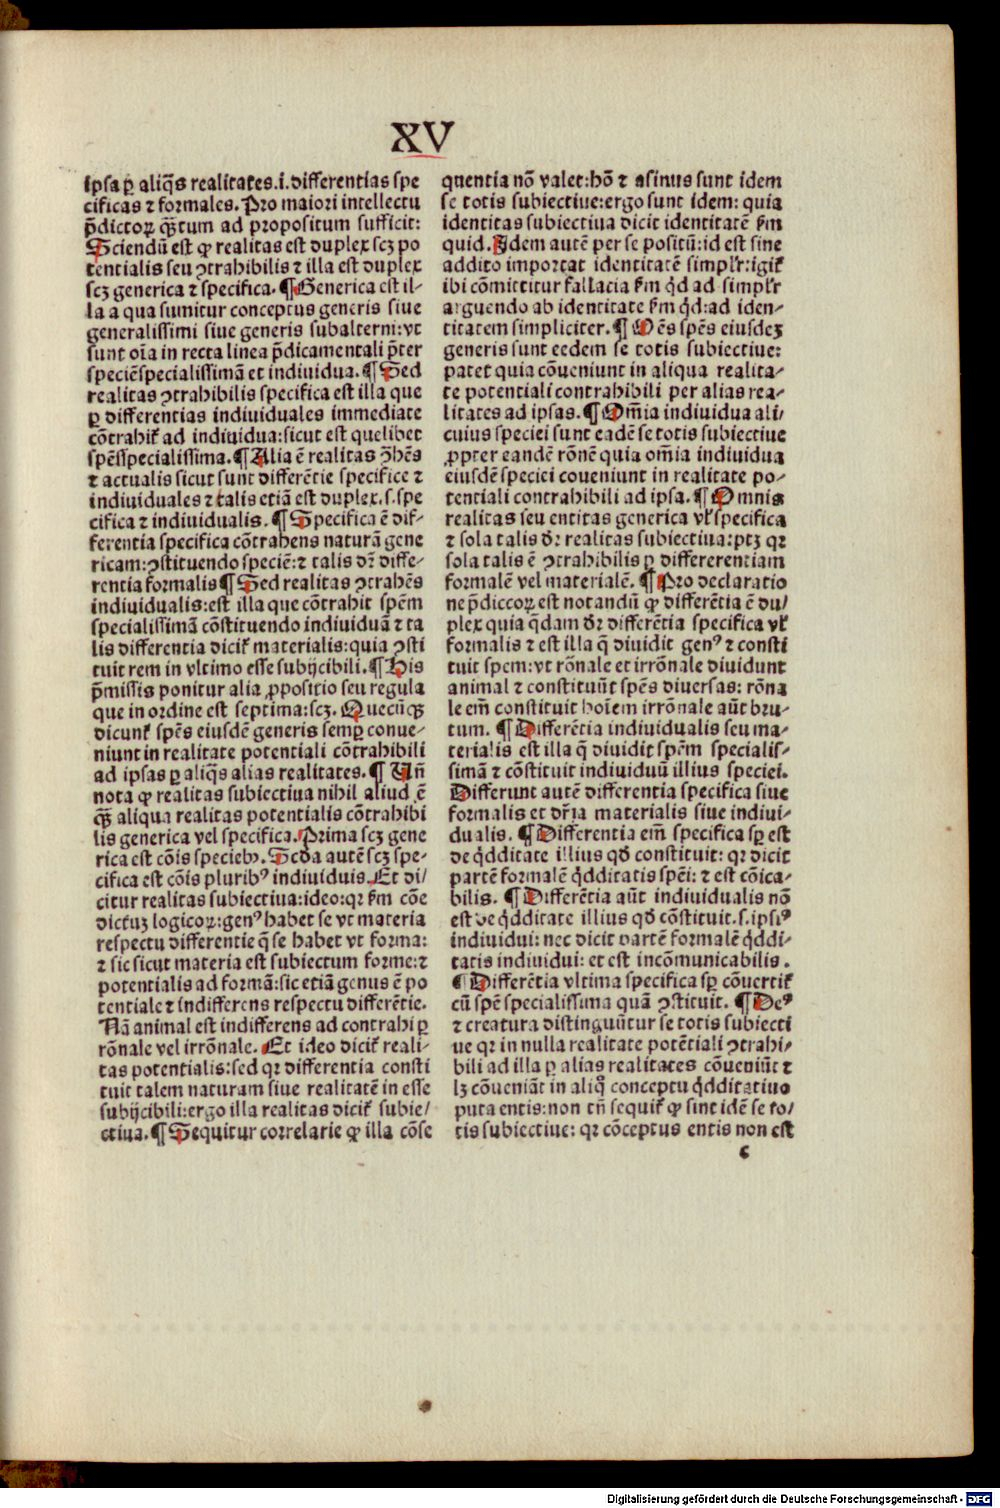 XV
ipsa ꝑ aliq̃s realitates.i.differentias spe
cificas ⁊ formales. Pro maiori intellectu
p̃dictoꝝ q̃ꝫtum ad propositum sufficit:
Sciendũ est ꝙ realitas est duplex scꝫ po
tentialis seu ꝯtrahibilis ⁊ illa est duplex
scꝫ generica ⁊ specifica. ¶ Generica est il-
la a qua sumitur conceptus generis siue
generalissimi siue generis subalterni: vt
sunt oĩa in recta linea p̃dicamentali p̃ter
speciẽ specialissimã et indiuidua. ¶ Sed
realitas ꝯtrahibilis specifica est illa que
ꝑ differentias indiuiduales immediate
cõtrahiť ad indiuidua: sicut est quelibet
spẽs specialissima. ¶ Alia ẽ realitas ꝯ̃hẽs
⁊ actualis sicut sunt differẽtie specifice ⁊
indiuiduales ⁊ talis etiã est duplex.s.spe
cifica ⁊ indiuidualis. ¶ Specifica ẽ dif-
ferentia specifica cõtrahens naturã gene
ricam: ꝯstituendo speciẽ: ⁊ talis dr̃ diffe-
rentia formalis ¶ Sed realitas ꝯtrahẽs
indiuidualis: est illa que cõtrahit spẽm
specialissimã cõstituendo indiuiduã ⁊ ta
lis differentia diciť materialis: quia ꝯsti
tuit rem in vltimo esse subijcibili. ¶ His
p̃missis ponitur alia ꝓpositio seu regula
que in ordine est septima: scꝫ. Quecũqꝫ
dicunť spẽs eiusdẽ generis semꝑ conue-
niunt in realitate potentiali cõtrahibili
ad ipsas ꝑ aliq̃s alias realitates. ¶ Vñ
nota ꝙ realitas subiectiua nihil aliud ẽ
q̃ꝫ aliqua realitas potentialis cõtrahibi
lis generica vel specifica. Prima scꝫ gene
rica est cõis specieb⁹. Scd̃a autẽ scꝫ spe-
cifica est cõis plurib⁹ indiuiduis. Et di/
citur realitas subiectiua: ideo: qꝛ ẜm cõe
dictuꝫ logicoꝝ: gen⁹ habet se vt materia
respectu differentie q̃ se habet vt forma:
⁊ sic sicut materia est subiectum forme: ⁊
potentialis ad formã: sic etiã genus ẽ po
tentiale ⁊ indifferens respectu differẽtie.
Nã animal est indifferens ad contrahi ꝑ
rõnale vel irrõnale. Et ideo diciť reali-
tas potentialis: sed qꝛ differentia consti
tuit talem naturam siue realitatẽ in esse
subijcibili: ergo illa realitas diciť subie/
ctiua. ¶ Sequitur correlarie ꝙ illa cõse
quentia nõ valet: hõ ⁊ asinus sunt idem
se totis subiectiue: ergo sunt idem: quia
identitas subiectiua dicit identitatẽ ẜm
quid. Idem autẽ per se positũ: id est sine
addito importat identitatẽ simplr̃: igiť
ibi cõmittitur fallacia ẜm q̃d ad simplr̃
arguendo ab identitate ẜm q̃d: ad iden-
titatem simpliciter. ¶ Oẽs spẽs eiusdeꝫ
generis sunt eedem se totis subiectiue:
patet quia cõueniunt in aliqua realita-
te potentiali contrahibili per alias rea-
litates ad ipsas. ¶ Om̃ia indiuidua ali/
cuius speciei sunt eadẽ se totis subiectiue
ꝓpter eandẽ rõnẽ quia om̃ia indiuidua
eiusdẽ speciei coueniunt in realitate po-
tentiali contrahibili ad ipsa. ¶ Omnis
realitas seu entitas generica vľ specifica
⁊ sola talis dr̃ realitas subiectiua: ptꝫ qꝛ
sola talis ẽ ꝯtrahibilis ꝑ differerentiam
formalẽ vel materialẽ. ¶ Pro declaratio
ne p̃dictoꝝ est notandũ ꝙ differẽtia ẽ du/
plex quia q̃dam dr̃ differẽtia specifica vľ
formalis ⁊ est illa q̃ diuidit gen⁹ ⁊ consti
tuit spem: vt rõnale et irrõnale diuidunt
animal ⁊ constituũt spẽs diuersas: rõna
le em̃ constituit hoiem irrõnale aũt bru-
tum. ¶ Differẽtia indiuidualis seu ma-
terialis est illa q̃ diuidit spẽm specialis-
simã ⁊ cõstituit indiuiduũ illius speciei.
Differunt autẽ differentia specifica siue
formalis et dr̃ia materialis siue indiui-
dualis. ¶ Differentia em̃ specifica sꝑ est
de q̃dditate illius qd̃ constituit: qꝛ dicit
partẽ formalẽ q̃dditatis spẽi: ⁊ est cõica-
bilis. ¶ Differẽtia aũt indiuidualis nõ
est de q̃dditate illius qd̃ cõstituit.s.ipsi⁹
indiuidui: nec dicit partẽ formalẽ q̃ddi-
tatis indiuidui: et est incõmunicabilis.
¶ Differẽtia vltima specifica sꝑ cõuertiť
cũ spẽ specialissima quã ꝯstituit. ¶ De⁹
⁊ creatura distinguũtur se totis subiecti
ue qꝛ in nulla realitate potẽtiali ꝯtrahi-
bili ad illa ꝑ alias realitates cõueniũt ⁊
lꝫ cõueniãt in aliq̃ conceptu q̃dditatiuo
puta entis: non tñ sequiť ꝙ sint idẽ se to/
tis subiectiue: qꝛ cõceptus entis non est
c
Digitalisierung gefördert durch die Deutsche Forschungsgemeinschaft - DFG